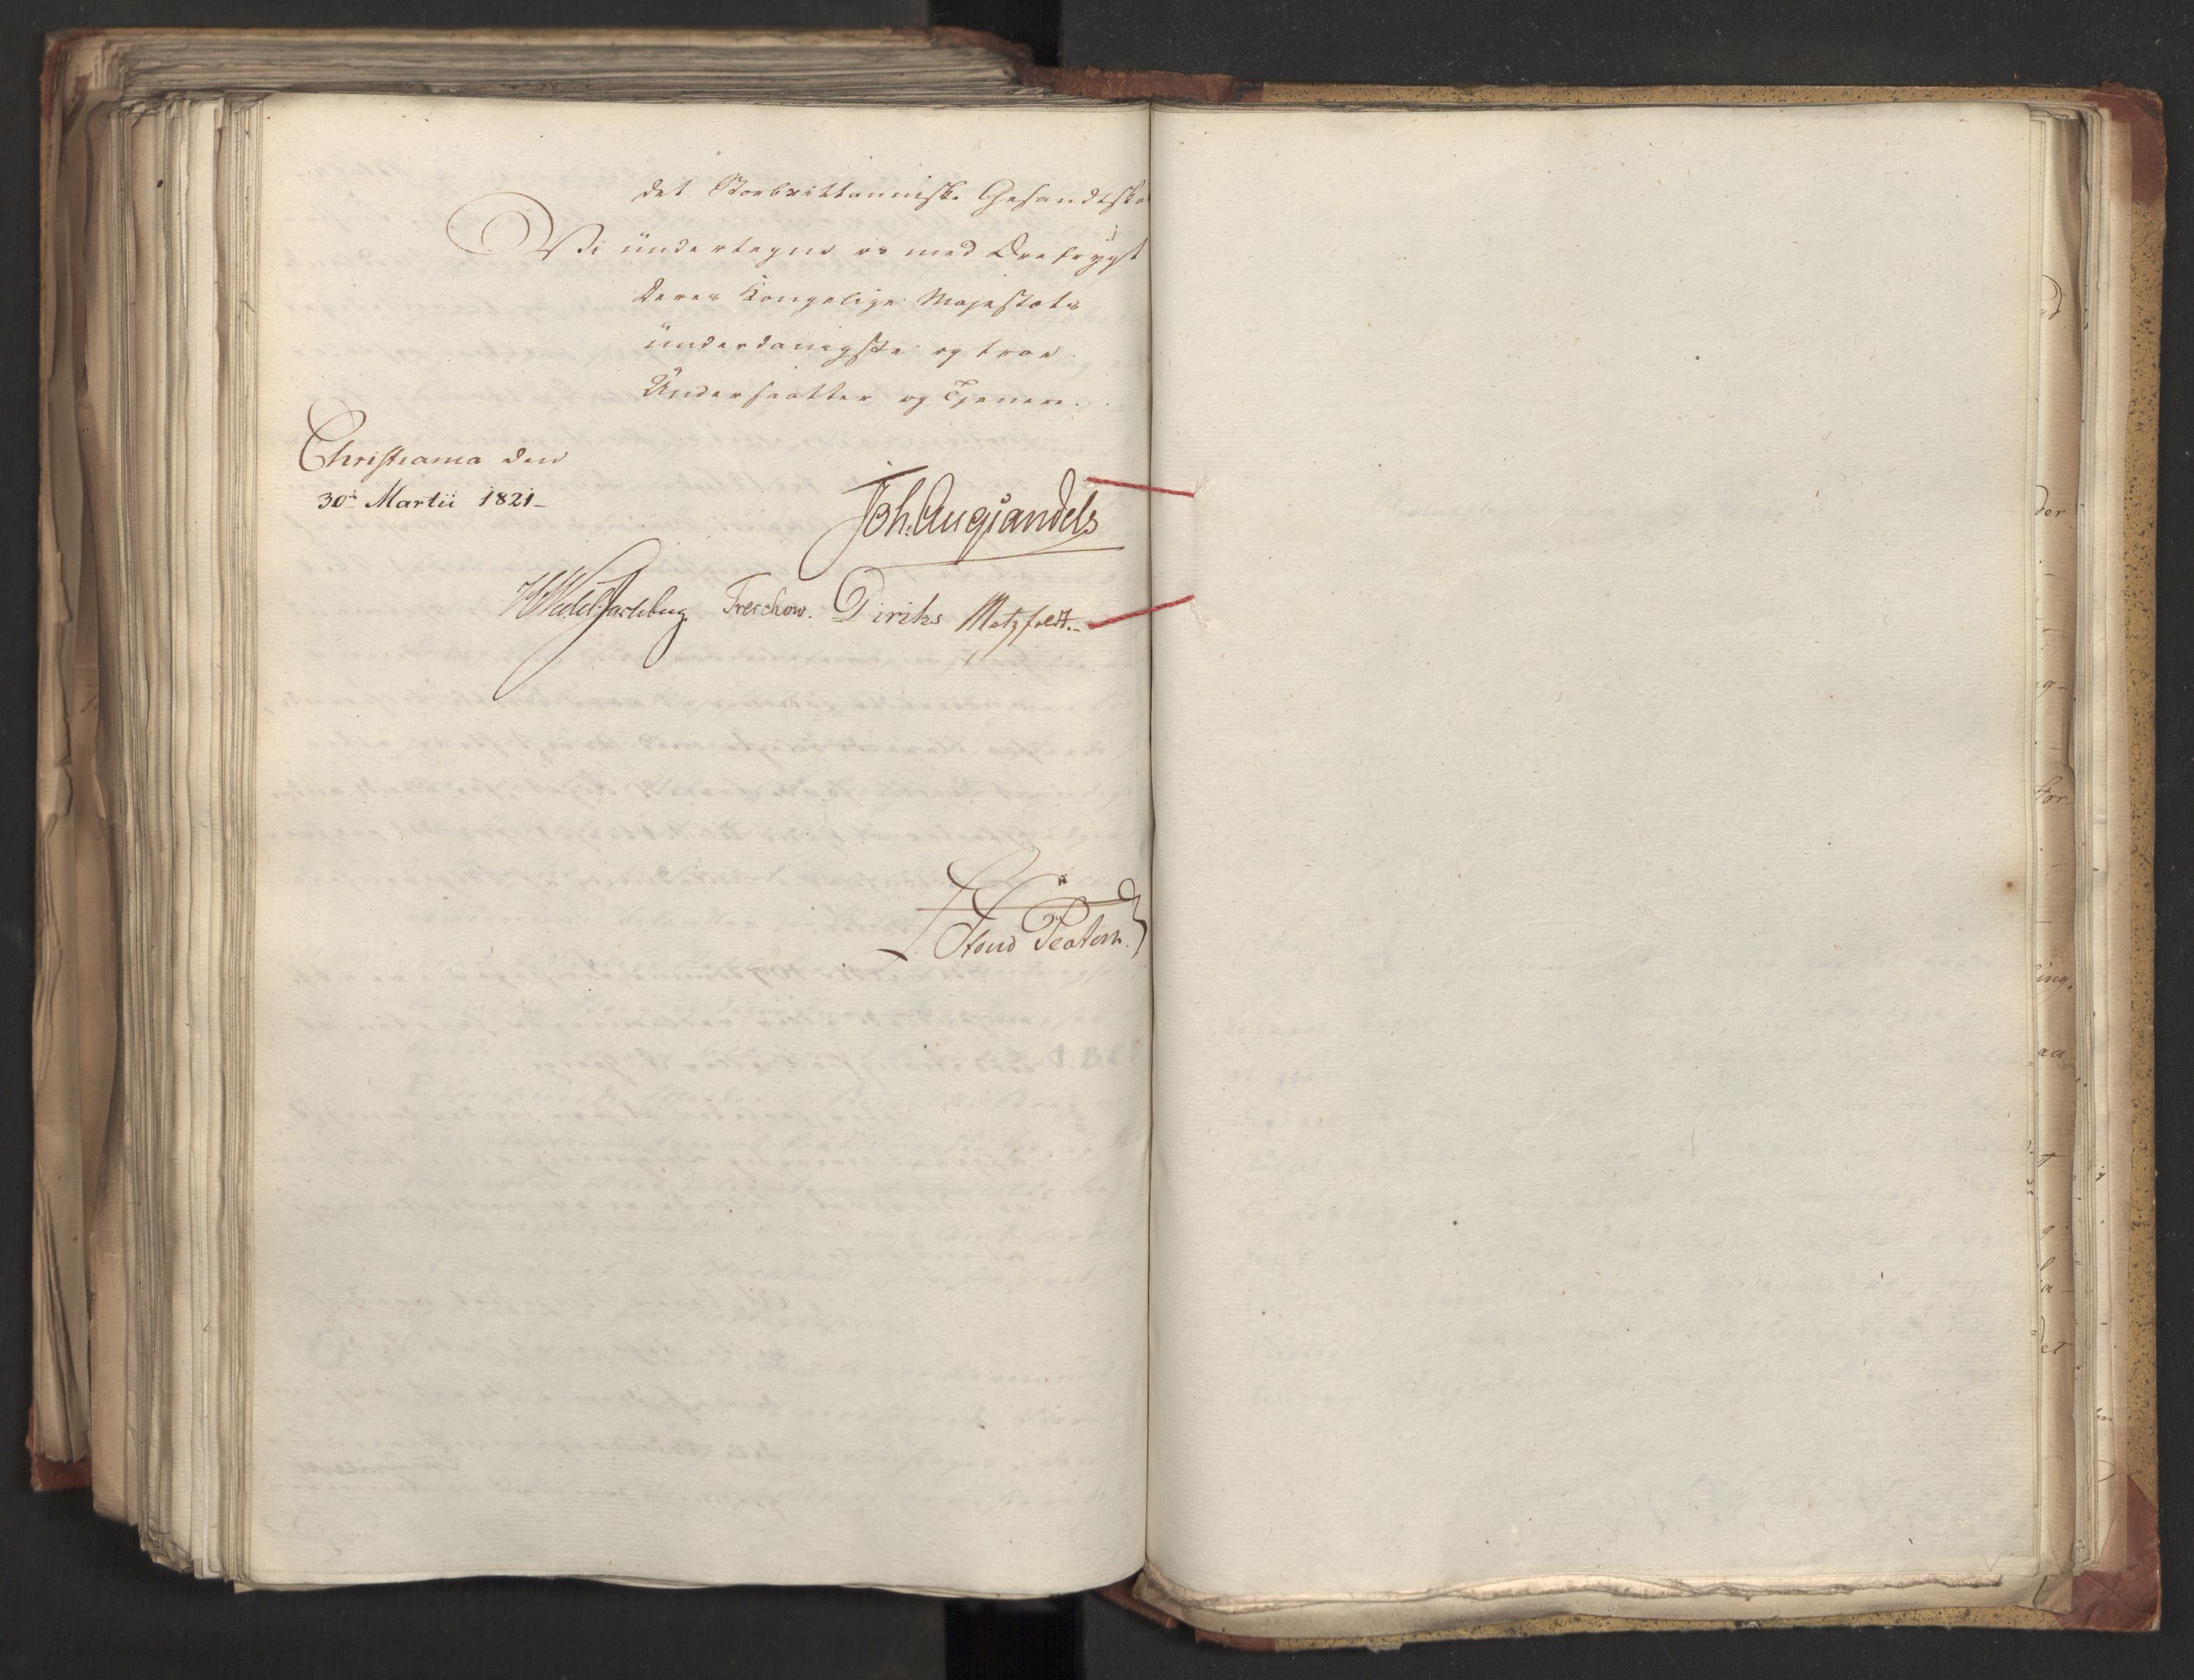 det Storbrittanniske Gesandtska
Vi undertegne os med Ærefrygt
Deres Kongelige Majestæts
underdanigste og troe
Undersaatter og Tjenere.
Christiania den
30te Martii 1821_
Joh. Aug. Sandels
HWedel Jarlsberg Treschow. Diriks Motzfeldt._
der
For
ing.
aa
det